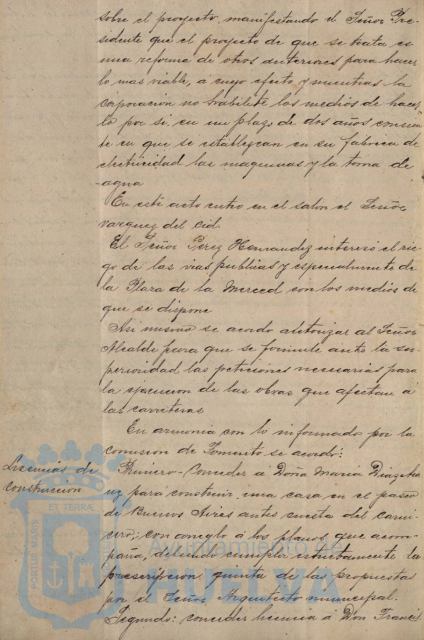 sobre el proyecto, manifestando el Señor Pre-
sidente que el proyecto de que se trata es
una reforma de otros anteriores para hacer
lo mas viable, a cuyo efecto, y mientras la
corporación no habilite los medios de hacer
lo por si, en un plazo de dos años consien
te en que se establezcan en su fabrica de
electricidad las maquinas y la toma de
agua
En este acto entro en el salon el Señor
Vazquez del Cid.
El Señor Perez Hernandez intereso el rie
go de las vias publicas y especialmente de
la Plaza de la Merced con los medios de
que se dispone
Asi mismo se acordo autorizar al Señor
Alcalde para que se formule ante la su-
perioridad las peticiones necesarias para
la ejecucion de las obras que afectan á
las carreteras
En armonia con lo informado por la
comision de Fomento se acordó:
Licencias de
construccion
Primero = Conceder a Doña Maria Diaz
para construir una casa en el paseo
de Buenos Aires antes cuesta del Carni
cero; con arreglo á los planos que acom-
paña, debiendo cumplir estrictamente la
prescripcion quinta de las propuestas
por el Señor Arquitecto municipal.
Segundo: conceder licencia a Don Francis
PORTUS MARIS ET TERRÆ
Ayuntamiento de
HUELVA